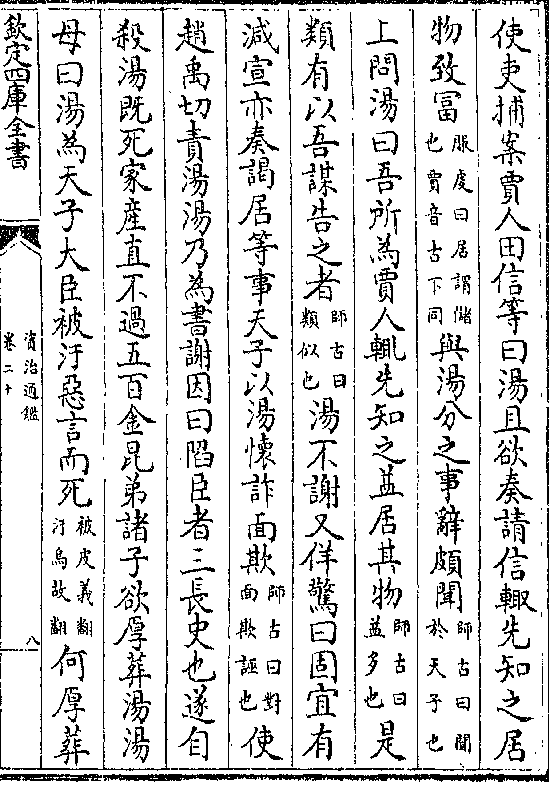 使吏捕案賈人田信等曰湯且欲奏請信輙先知之居
物致冨服䖍曰居謂儲也賈音古下同與湯分之事辭頗聞師古曰聞於天子也
上問湯曰吾所為賈人輙先知之益居其物師古曰益多也是
類有以吾謀告之者師古曰類似也湯不謝又佯驚曰固宜有
減宣亦奏謁居等事天子以湯懷詐面欺師古曰對面欺誣也使
趙禹切責湯湯乃為書謝因曰陷臣者三長史也遂自
殺湯既死家產直不過五百金昆弟諸子欲厚葬湯湯
母曰湯為天子大臣被汙惡言而死被皮義翻汙烏故翻何厚葬
欽定四庫全書
資治通鑑
卷二十
八